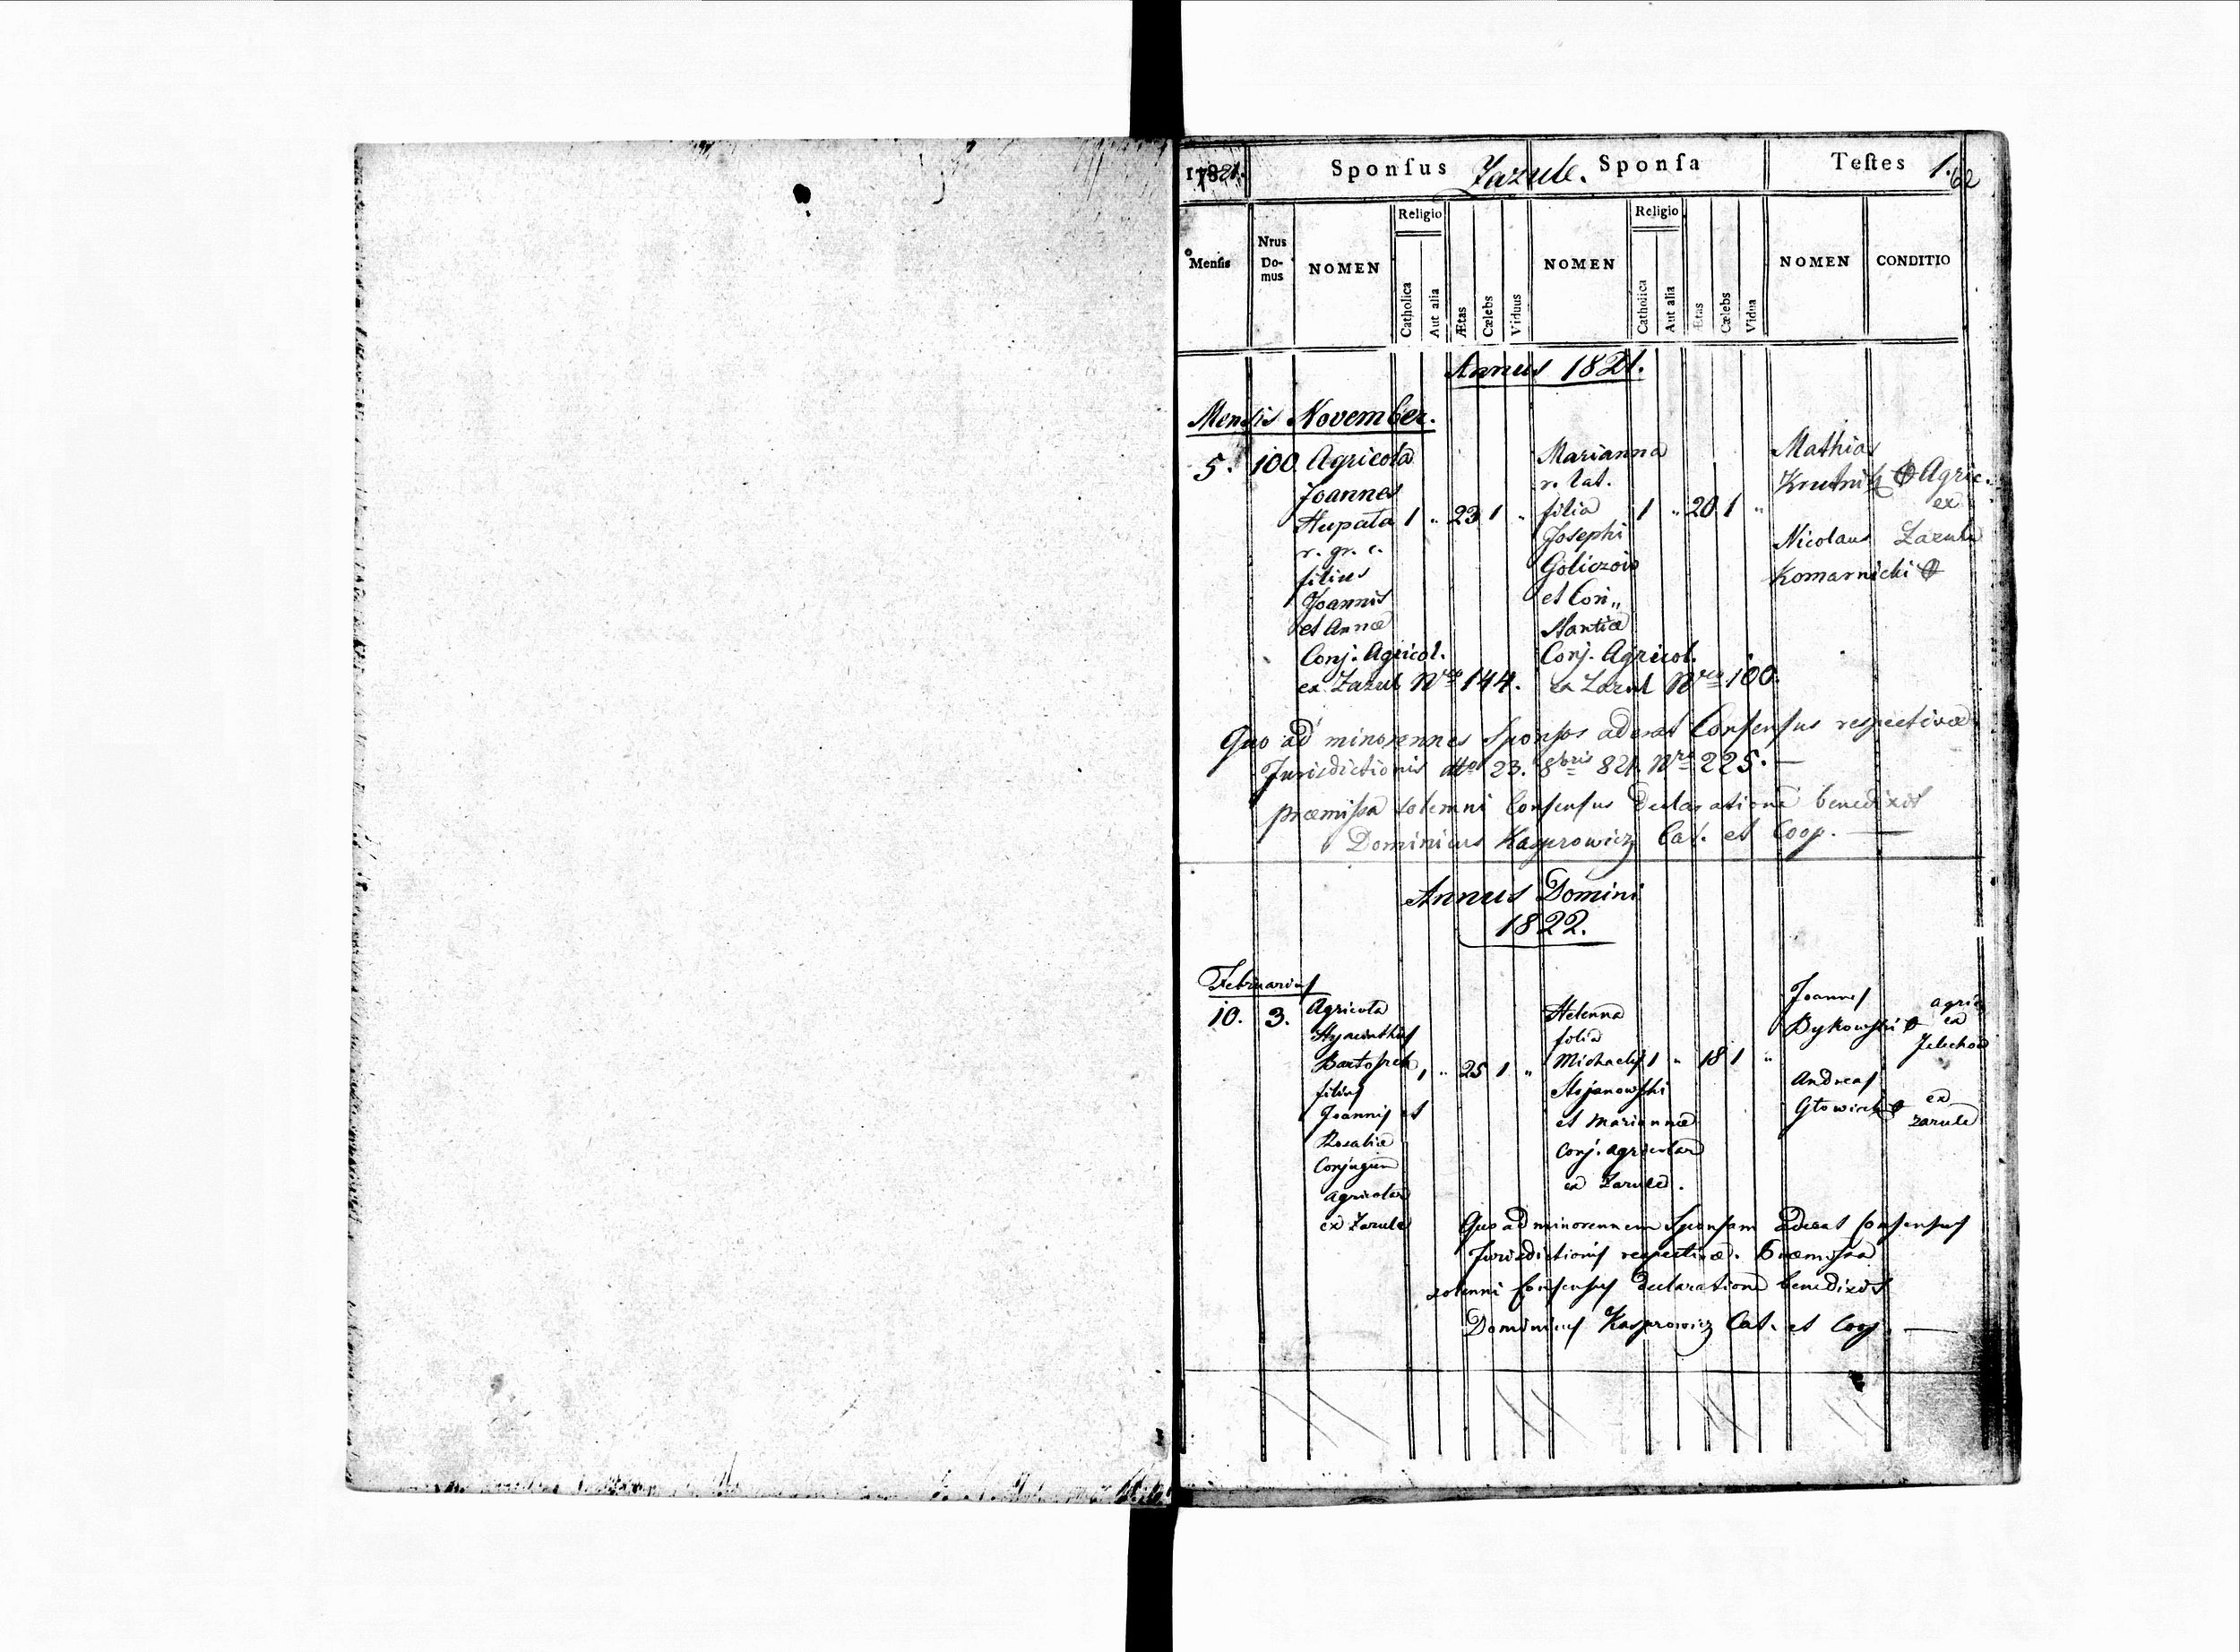 1821. Sponſus Zazule. Sponſa Teſtes 1.
Menſis Nrus Domus NOMEN Religio Catholica Aut alia Ætas Cælebs Viduus NOMEN Religio Catholica Aut alia Ætas Cælebs Vidua NOMEN CONDITIO
Annus 1821.
Mensis November.
5. 100. Agricola Marianna Mathias
Joannes r. lat. Krutnik Agric.
Hupała 1 " 23 1 " filia 1 " 20 1 " ex
r. gr. c. Josephi Nicolaus Zazule
filius Goliczow Komarnicki
Joannis et Con„
et Annæ stantiæ
Conj. Agricol. Conj. Agricol.
ex Zazul Nro 144. ex Zazul Nro 100.
Quo ad minorennes Sponsos aderat Consensus respectivæ
Jurisdictionis dto 23. 8bris 821. Nro 225. —
præmissa solemni Consensus declaratione benedixit
Dominicus Kasprowicz Cat. et Coop. —
Annus Domini
1822.
Februarius
10. 3. Agricola Helenna Joannes agric
Hyacinthus filia Bykowski ex
Bartoszek 1 " 25 1 " Michaelis 1 " 18 1 " Jelechow
filius Stojanowski Andreas
Joannis et et Mariannæ ex
Rosaliæ Conj. agricolar zazule
Conjugum ex Zazule.
Agricolar
ex Zazule Quo ad minorennem Sponsam aderat Consensus
Jurisdictionis respectivæ. Præmissa
solenni Consensus declaratione benedixit
Dominicus Kasprowicz Cat. et Coop. —